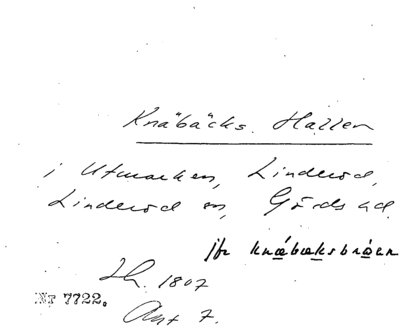 Knäbäcks Hallen
i Utmarken, Linderöd,
Linderöd sn, Gärds hd.
jfr knäbæksbroen
Sk. 1807
Nr 7722.
Akt 7.